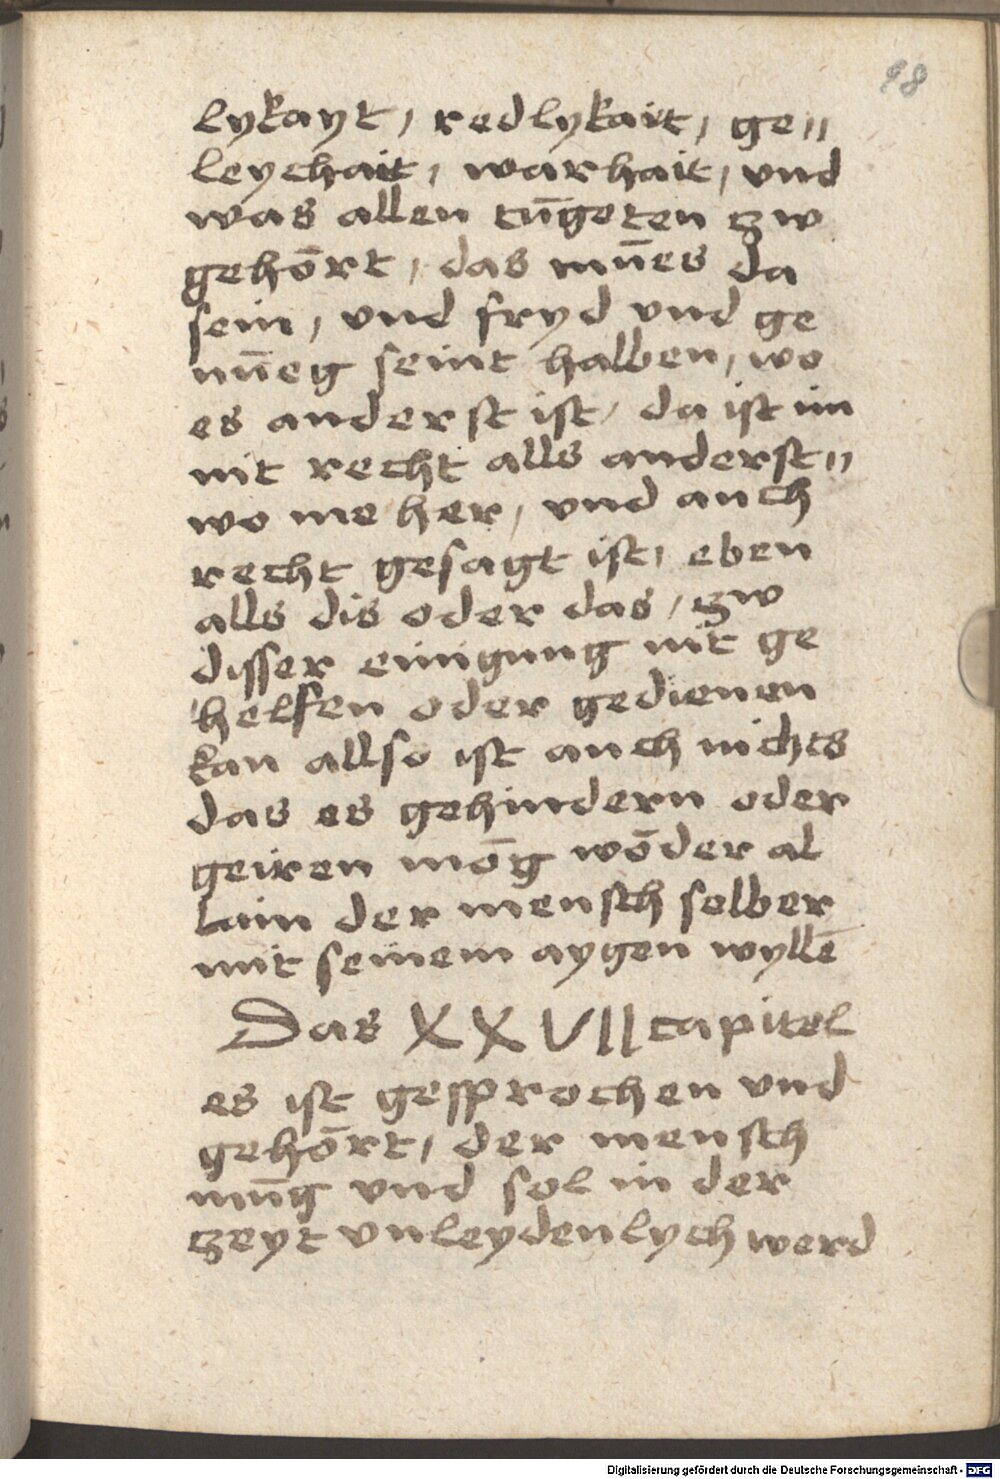 98
lykayt, redlykait, ge„
leychait, warhait, und
was allen tūgeten zw
gehōrt, das mūes da
sein, und fryd und ge
nūeg seint halben, wo
es anderst ist, da ist im
nit recht alls anderst„
wo me her, und auch
recht gesagt ist, eben
alls dis oder das, zw
disser einigung nit ge
helfen oder gedienen
kan allso ist auch nichts
das es gehindern oder
geiren mōg wōder al
lain der mensch selber
mit seinem aygen wyllē
Das XXVII capitel
es ist gesprochen und
gehōrt, der mensch
mūg und sol in der
zeyt unleydenlych werd
Digitalisierung gefördert durch die Deutsche Forschungsgemeinschaft - DFG